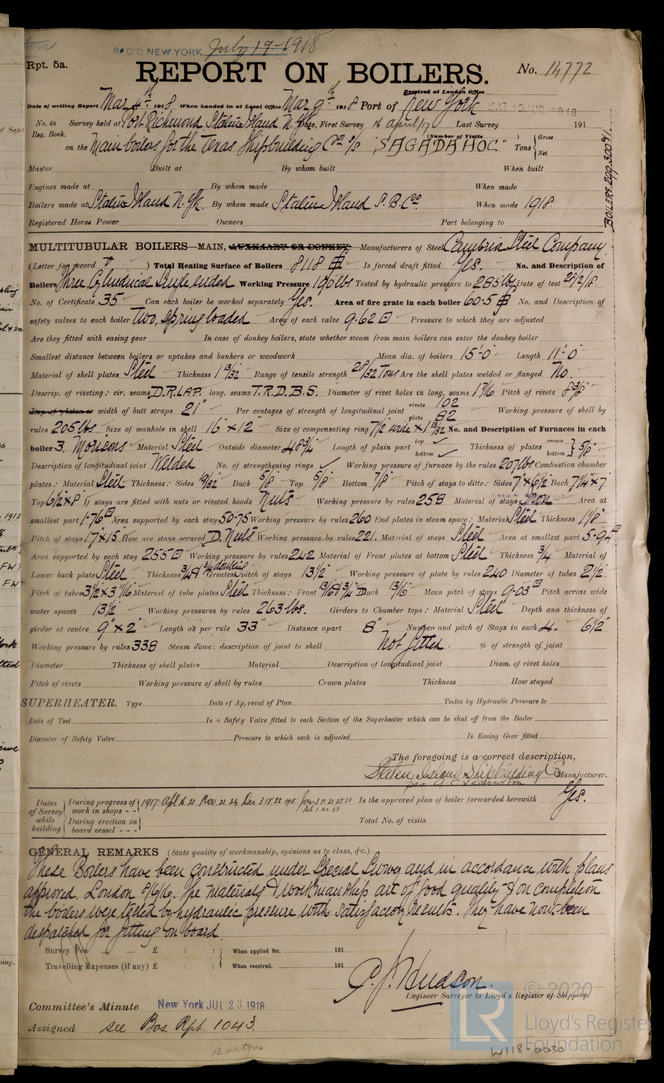 REC'D NEW YORK July 19-1918
Rpt. 5a.
REPORT ON BOILERS.
No. 14772
Received at London Office
Date of writing Report Mar 4th 1918 When handed in at Local Office Mar 9th 1918 Port of New York
No. in Survey held at Port Richmond Staten Island N.Yk. Date, First Survey 16 april/17 Last Survey 191
Reg. Book. (Number of Visits ) Gross
on the Main boilers for the Texas Shipbuilding Co. S/S "SAGADAHOC" Tons Net
Master Built at By whom built When built
Engines made at By whom made When made
Boilers made at Staten Island N.Yk. By whom made Staten Island S.B.Co. When made 1918
Registered Horse Power Owners Port belonging to
BOILERS 299.300.41.
MULTITUBULAR BOILERS—MAIN, AUXILIARY OR DONKEY.—Manufacturers of Steel Cambria Steel Company
(Letter for record ) Total Heating Surface of Boilers 8118 Is forced draft fitted Yes. No. and Description of
Boilers Three Cylindrical Single ended Working Pressure 190 lbs Tested by hydraulic pressure to 285 lbs Date of test 2/2/18
No. of Certificate 35 Can each boiler be worked separately Yes. Area of fire grate in each boiler 60.5 No. and Description of
safety valves to each boiler Two, Spring loaded Area of each valve 9.62 Pressure to which they are adjusted
Are they fitted with easing gear In case of donkey boilers, state whether steam from main boilers can enter the donkey boiler
Smallest distance between boilers or uptakes and bunkers or woodwork Mean dia. of boilers 15'-0" Length 11'-0"
Material of shell plates Steel Thickness 1 9/32 Range of tensile strength 28/32 Tons Are the shell plates welded or flanged No.
Descrip. of riveting: cir. seams D.R.LAP. long. seams T.R.D.B.S. Diameter of rivet holes in long. seams 1 7/16 Pitch of rivets
width of butt straps 21" Per centages of strength of longitudinal joint rivets 102 plate 82 Working pressure of shell by
rules 205 lbs. Size of manhole in shell 16" x 12" Size of compensating ring No. and Description of Furnaces in each
boiler 3, Morisons Material Steel Outside diameter 48 3/4 Length of plain part top bottom Thickness of plates crown bottom 5/8"
Description of longitudinal joint Welded No. of strengthening rings Working pressure of furnace by the rules 207 lbs Combustion chamber
plates: Material Steel Thickness: Sides 19/32 Back 5/8 Top 5/8 Bottom 7/8 Pitch of stays to ditto: Sides Back
Top If stays are fitted with nuts or riveted heads Nuts Working pressure by rules 258 Material of stays Iron Area at
smallest part 1.76 Area supported by each stay 50.75 Working pressure by rules 260 End plates in steam space: Material Steel Thickness 1 1/8"
Pitch of stays 17 x 15 How are stays secured D. Nuts Working pressure by rules 221. Material of stays Steel Area at smallest part 5.94
Area supported by each stay 255 Working pressure by rules 242 Material of Front plates at bottom Steel Thickness 3/4 Material of
Lower back plate Steel Thickness Greatest pitch of stays 13 1/2 Working pressure of plate by rules 240 Diameter of tubes 2 1/2
Pitch of tubes Material of tube plates Steel Thickness: Front Back 13/16 Mean pitch of stays 9.03 Pitch across wide
water spaces 13 1/2 Working pressures by rules 263 lbs. Girders to Chamber tops: Material Steel Depth and thickness of
girder at centre 9" x 2" Length as per rule 33" Distance apart 8" Number and pitch of Stays in each 4. 6 1/2"
Working pressure by rules 338 Steam dome: description of joint to shell Not fitted. % of strength of joint
Diameter Thickness of shell plates Material Description of longitudinal joint Diam. of rivet holes
Pitch of rivets Working pressure of shell by rules Crown plates Thickness How stayed
SUPERHEATER. Type Date of Approval of Plan Tested by Hydraulic Pressure to
Date of Test Is a Safety Valve fitted to each Section of the Superheater which can be shut off from the Boiler
Diameter of Safety Valve Pressure to which each is adjusted Is Easing Gear fitted
The foregoing is a correct description,
Staten Island Shipbuilding Co. Manufacturer.
Dates of Survey while building During progress of work in shops - - 1917 Is the approved plan of boiler forwarded herewith Yes.
During erection on board vessel - - - Total No. of visits
GENERAL REMARKS (State quality of workmanship, opinions as to class, &c.)
These Boilers have been constructed under Special Survey and in accordance with plans
approved. London The materials & workmanship are of good quality & on completion
the boilers were tested by hydraulic pressure with satisfactory results. They have now been
despatched for fitting on board
Survey Fee ... £ : : When applied for, 191
Travelling Expenses (if any) £ : : When received, 191
P. J. Hudson.
Engineer Surveyor to Lloyd's Register of Shipping.
Committee's Minute New York JUL 23 1918
Assigned see Bos. Rpt. 1043.
Boston
© 2020
LR
Lloyd's Register
Foundation
W118-0030